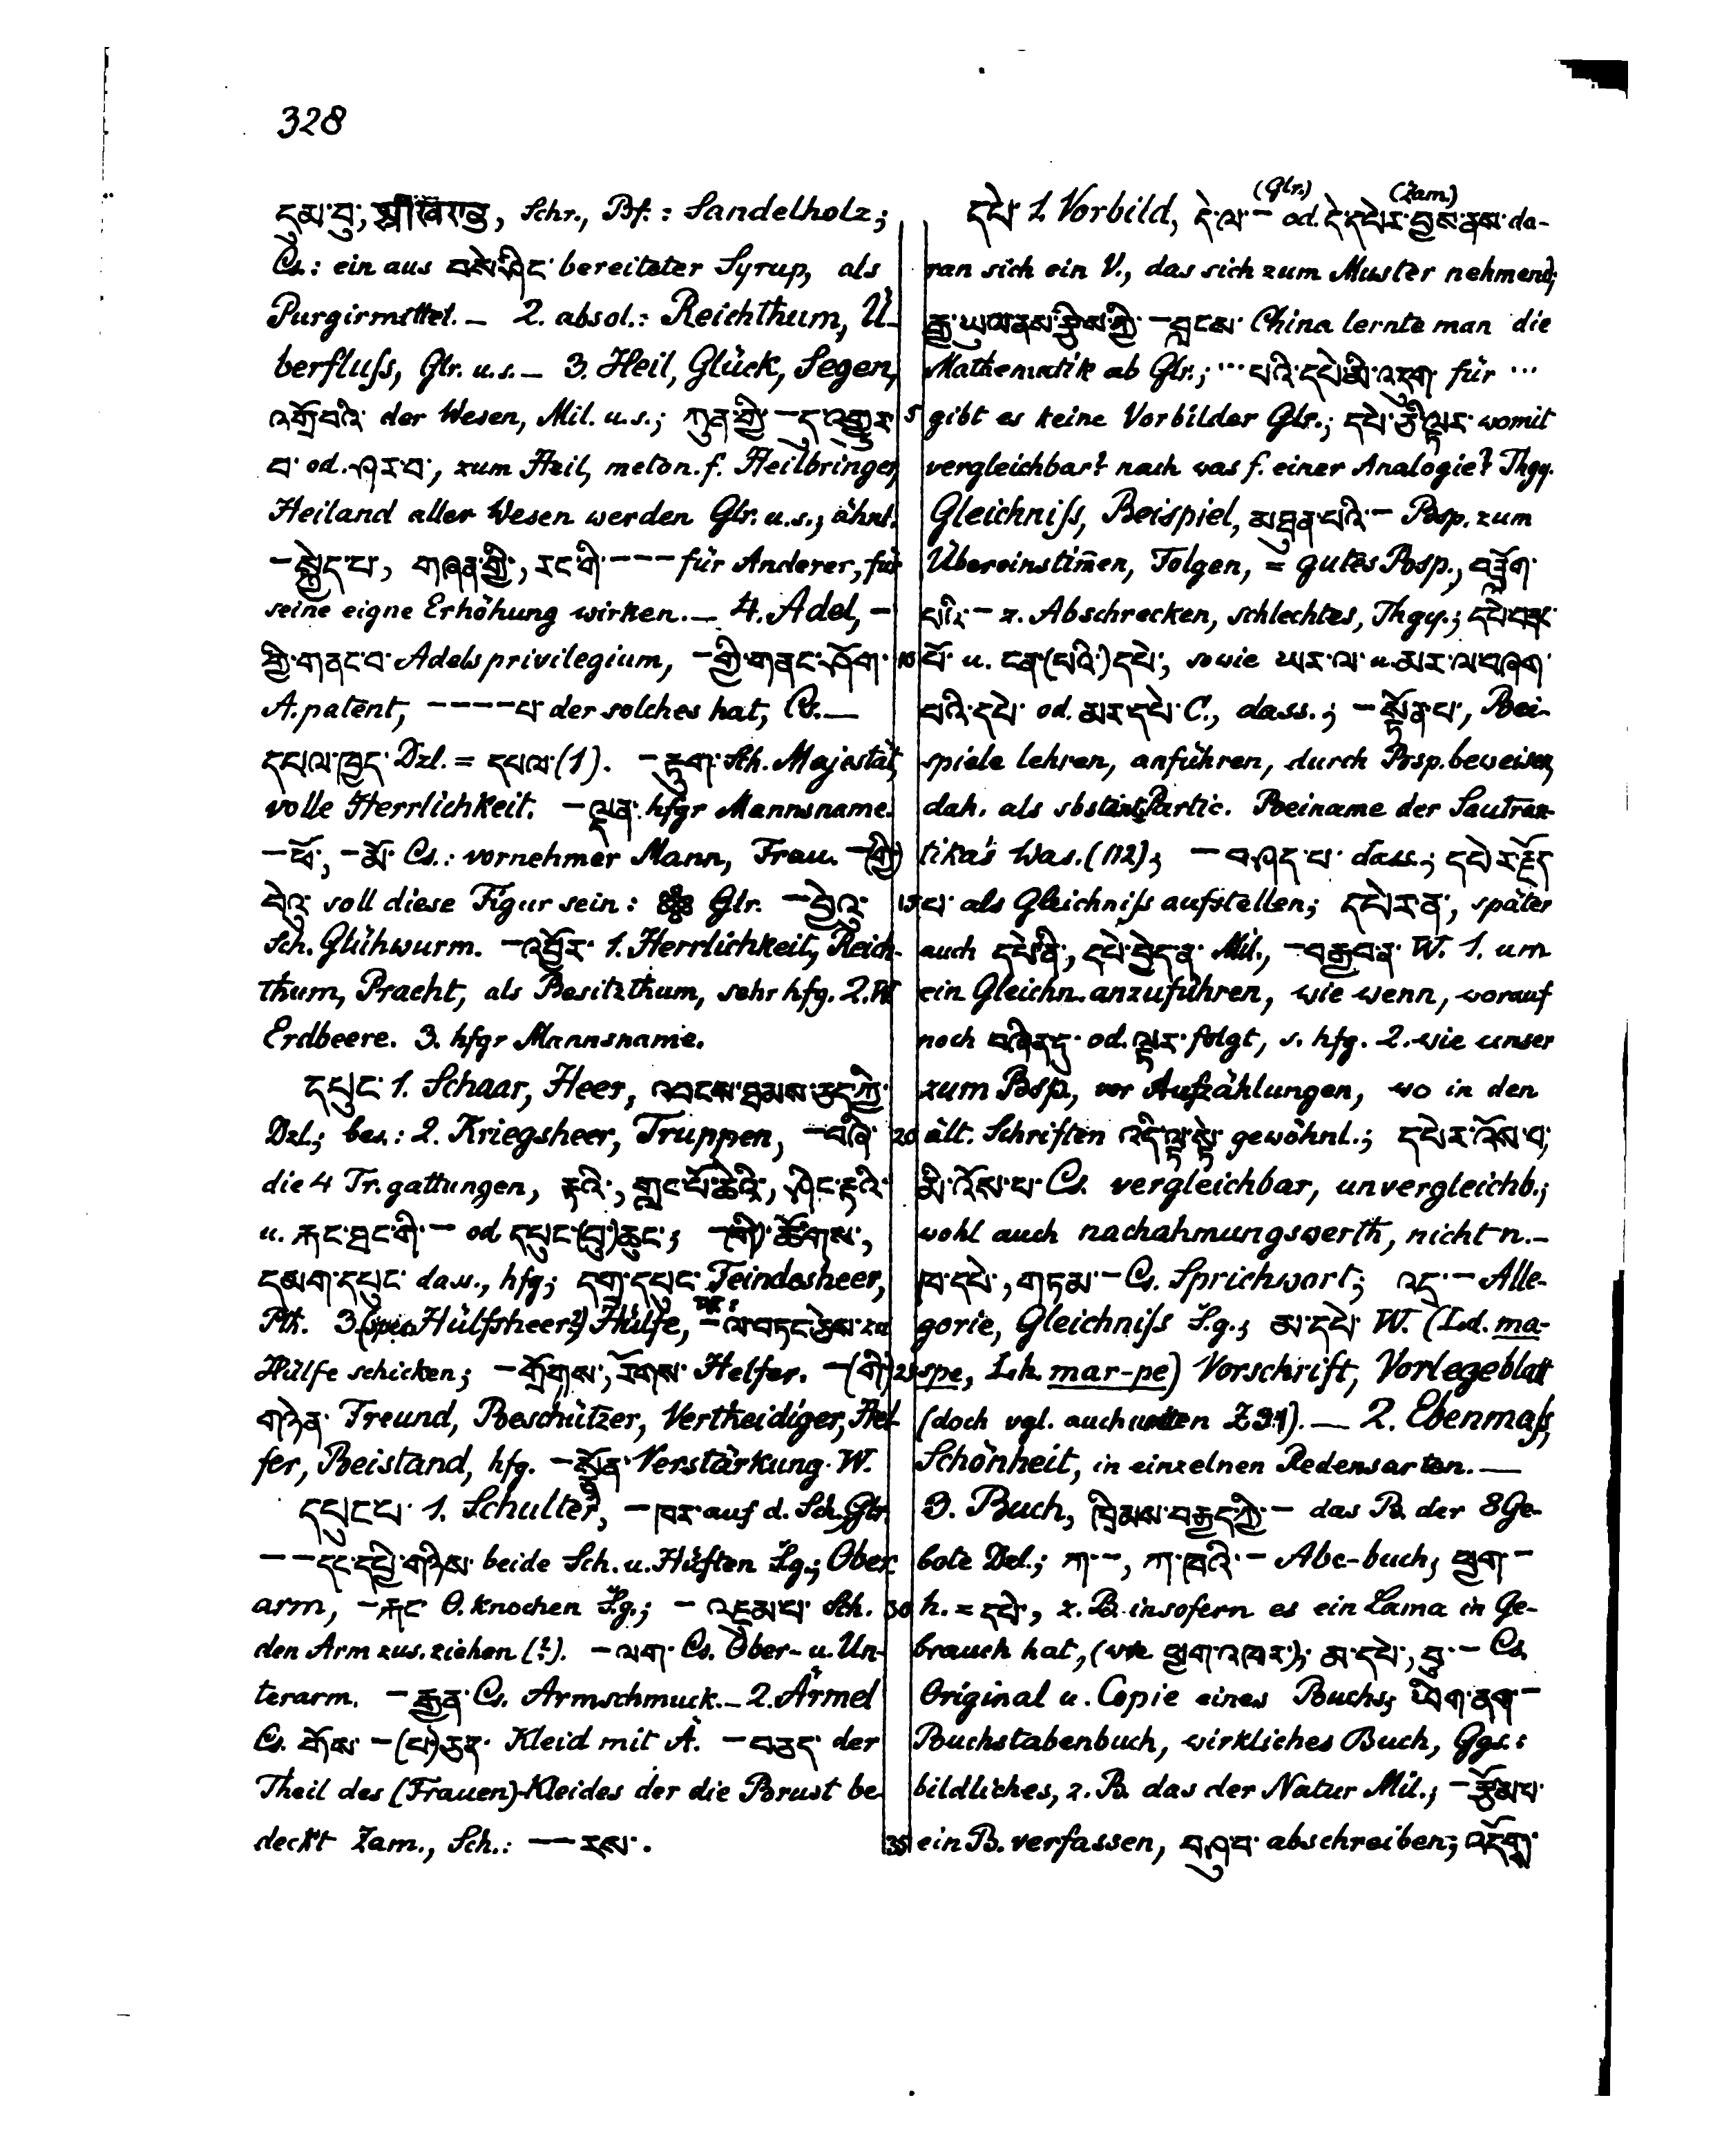 328
དུམ་བུ་, श्रीखण्ड, Schr., Bf.: Sandelholz;
Cs.: ein aus བསེ་ཤིང་ bereiteter Syrup, als
Purgirmittel. — 2. absol.: Reichthum, Ü-
berfluſs, Glr. u.s. — 3. Heil, Glück, Segen,
འགྲོ་བའི་ der Wesen, Mil. u.s.; ཀུན་གྱི་ — དུ་འགྱུར་
བ་ od. ཤར་བ་, zum Heil, meton. f. Heilbringer,
Heiland aller Wesen werden Glr. u.s.; ähnl.
— སྐྱེད་པ་, གཞན་གྱི་, རང་གི་ — — — für Anderer, für
seine eigne Erhöhung wirken. — 4. Adel, —
གྱི་གནང་བ་ Adelsprivilegium, — གྱི་གནང་ཤོག་
A. patent, — — — — པ་ der solches hat, Cs. —
དཔལ་ཁྱད་ Dzl. = དཔལ་ (1). — རྟུག་ Sch. Majestät,
volle Herrlichkeit. — ལྡན་ hfgr Mannsname.
— ཕོ་, — མོ་ Cs.: vornehmer Mann, Frau. — (གྱི་)
བེའུ་ soll diese Figur sein: Glr. — བྱེའུ་
Sch. Glühwurm. — འབྱོར་ 1. Herrlichkeit, Reich-
thum, Pracht, als Besitzthum, sehr hfg. 2. W.
Erdbeere. 3. hfgr Mannsname.
དཔུང་ 1. Schaar, Heer, འབངས་ཐམས་ཅད་ཀྱི་
Dzl.; bes.: 2. Kriegsheer, Truppen, — བཞི་
die 4 Tr. gattungen, རྟའི་, གླང་པོ་ཆེའི་, ཤིང་རྟའི་
u. རྐང་ཐང་གི་ — od. དཔུང་(བུ་)ཆུང་; — (གི་) ཚོགས་,
དམག་དཔུང་ dass., hfg; དགྲ་དཔུང་ Feindesheer,
Pth. 3. Hülfsheer?) Hülfe, W.: — ལ་བཏང་ཅེས་ zu
Hülfe schicken; — གྲོགས་, རོགས་ Helfer. — (གི་)
གཉེན་ Freund, Beschützer, Vertheidiger, Hel-
fer, Beistand, hfg. — སྣོན་ Verstärkung W.
དཔུང་པ་ 1. Schulter, — ཁར་ auf d. Sch. Glr.
— — དང་དཔྱི་གཉིས་ beide Sch. u. Hüften S.g.; Ober-
arm, — རྐང་ O. knochen S.g.; — འཛུམ་པ་ Sch.
den Arm zus. ziehen (?). — ལག་ Cs. Ober- u. Un-
terarm. — རྒྱན་ Cs. Armschmuck. — 2. Ärmel
Cs. གོས་ — (པ་)ཅན་ Kleid mit Ä. — བཅད་ der
Theil des (Frauen)-Kleides der die Brust be-
deckt Zam., Sch.: — — རས་.
(Glr.) (Zam.)
དཔེ་ 1. Vorbild, དེ་ལ་ — od. དེ་དཔེར་བྱས་ནས་ da-
ran sich ein V., das sich zum Muster nehmend;
རྒྱ་ཡུལ་ནས་རྩིས་ཀྱི་ — བླངས་ China lernte man die
Mathematik ab Glr.; ··· པའི་དཔེ་མི་འདུག་ für ···
5 gibt es keine Vorbilder Glr.; དཔེ་ཅི་ལྟར་ womit
vergleichbar? nach was f. einer Analogie? Thgy.
Gleichniſs, Beispiel, མཐུན་པའི་ — Bsp. zum
Übereinstim̄en, Folgen, = gutes Bsp., བཟློག་
པའི་ — z. Abschrecken, schlechtes, Thgy.; དཔེ་བཟང་
10 པོ་ u. ངན་(པའི་)དཔེ་, sowie ཡར་ལ་ u. མར་ལ་བཞག་
བའི་དཔེ་ od. མར་དཔེ་ C., dass.; — སྟོན་པ་, Bei-
spiele lehren, anführen, durch Bsp. beweisen,
dah. als sbst. Partic. Beiname der Sautran-
tika's Was. (112); — བཤད་པ་ dass.; དཔེར་རྗོད་
15 པ་ als Gleichniſs aufstellen; དཔེར་ན་, später
auch དཔེ་ནི་, དཔེ་བྱེད་ན་ Mil., — བརྒྱབ་ན་ W. 1. um
ein Gleichn. anzuführen, wie wenn, worauf
noch བཞིན་དུ་ od. ལྟར་ folgt, s. hfg. 2. wie unser
zum Bsp., vor Aufzählungen, wo in den
20 ält. Schriften འདི་ལྟ་སྟེ་ gewöhnl.; དཔེར་འོས་བ་,
མི་འོས་པ་ Cs. vergleichbar, unvergleichb.;
wohl auch nachahmungswerth, nicht n. —
ཁ་དཔེ་, གཏམ་ — Cs. Sprichwort; འདྲ་ — Alle-
gorie, Gleichniſs S.g.; མ་དཔེ་ W. (Ld. ma-
25 spe, Lh. mar-pe) Vorschrift, Vorlegeblatt
(doch vgl. auch unten Z 31). — 2. Ebenmaſs,
Schönheit, in einzelnen Redensarten. —
3. Buch, ཁྲིམས་བརྒྱད་ཀྱི་ — das B. der 8 Ge-
bote Dzl.; ཀ་ —, ཀ་ཁའི་ — Abc-buch; ཕྱག་ —
30 h. = དཔེ་, z. B. insofern es ein Lama in Ge-
brauch hat, (wie ཕྱག་འཁར་); མ་དཔེ་, བུ་ — Cs.
Original u. Copie eines Buchs; ཡིག་ནག་ —
Buchstabenbuch, wirkliches Buch, Ggs.:
bildliches, z. B. das der Natur Mil.; — རྩོམ་པ་
35 ein B. verfassen, བཤུ་བ་ abschreiben;